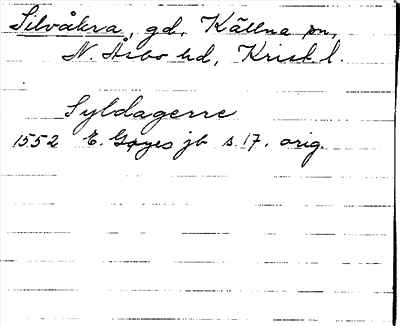 Silvåkra, gd, Källna sn,
N. Åsbo hd, Krist. l.
Syldagerre
1552 E. Gøyes jb s. 17. orig.